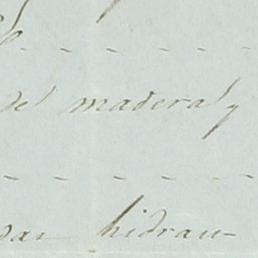 del maderal y
hidrau-